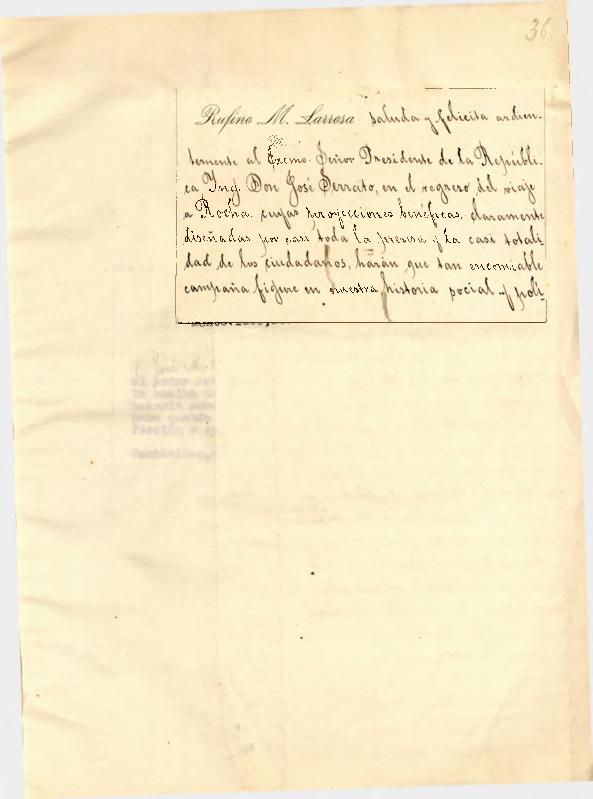 36.
Rufino M. Larrosa saluda y felicita ardien-
temente al Excmo. Señor Presidente de la Repúbli-
ca Ing. Don José Serrato, en el regreso del viaje
a Rocha cuyas proyecciones benéficas, claramente
diseñadas por casi toda la prensa y la casi totali-
dad de los ciudadanos, harán que tan encomiable
campaña figure en nuestra historia social y polí-